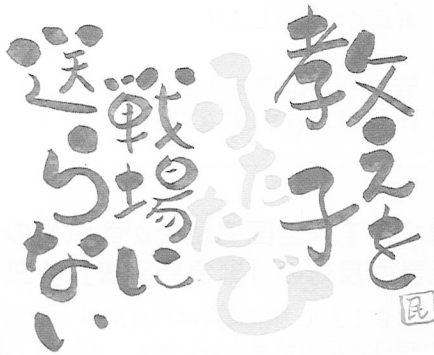 教え子を
ふたたび
戦場に
送らない
民